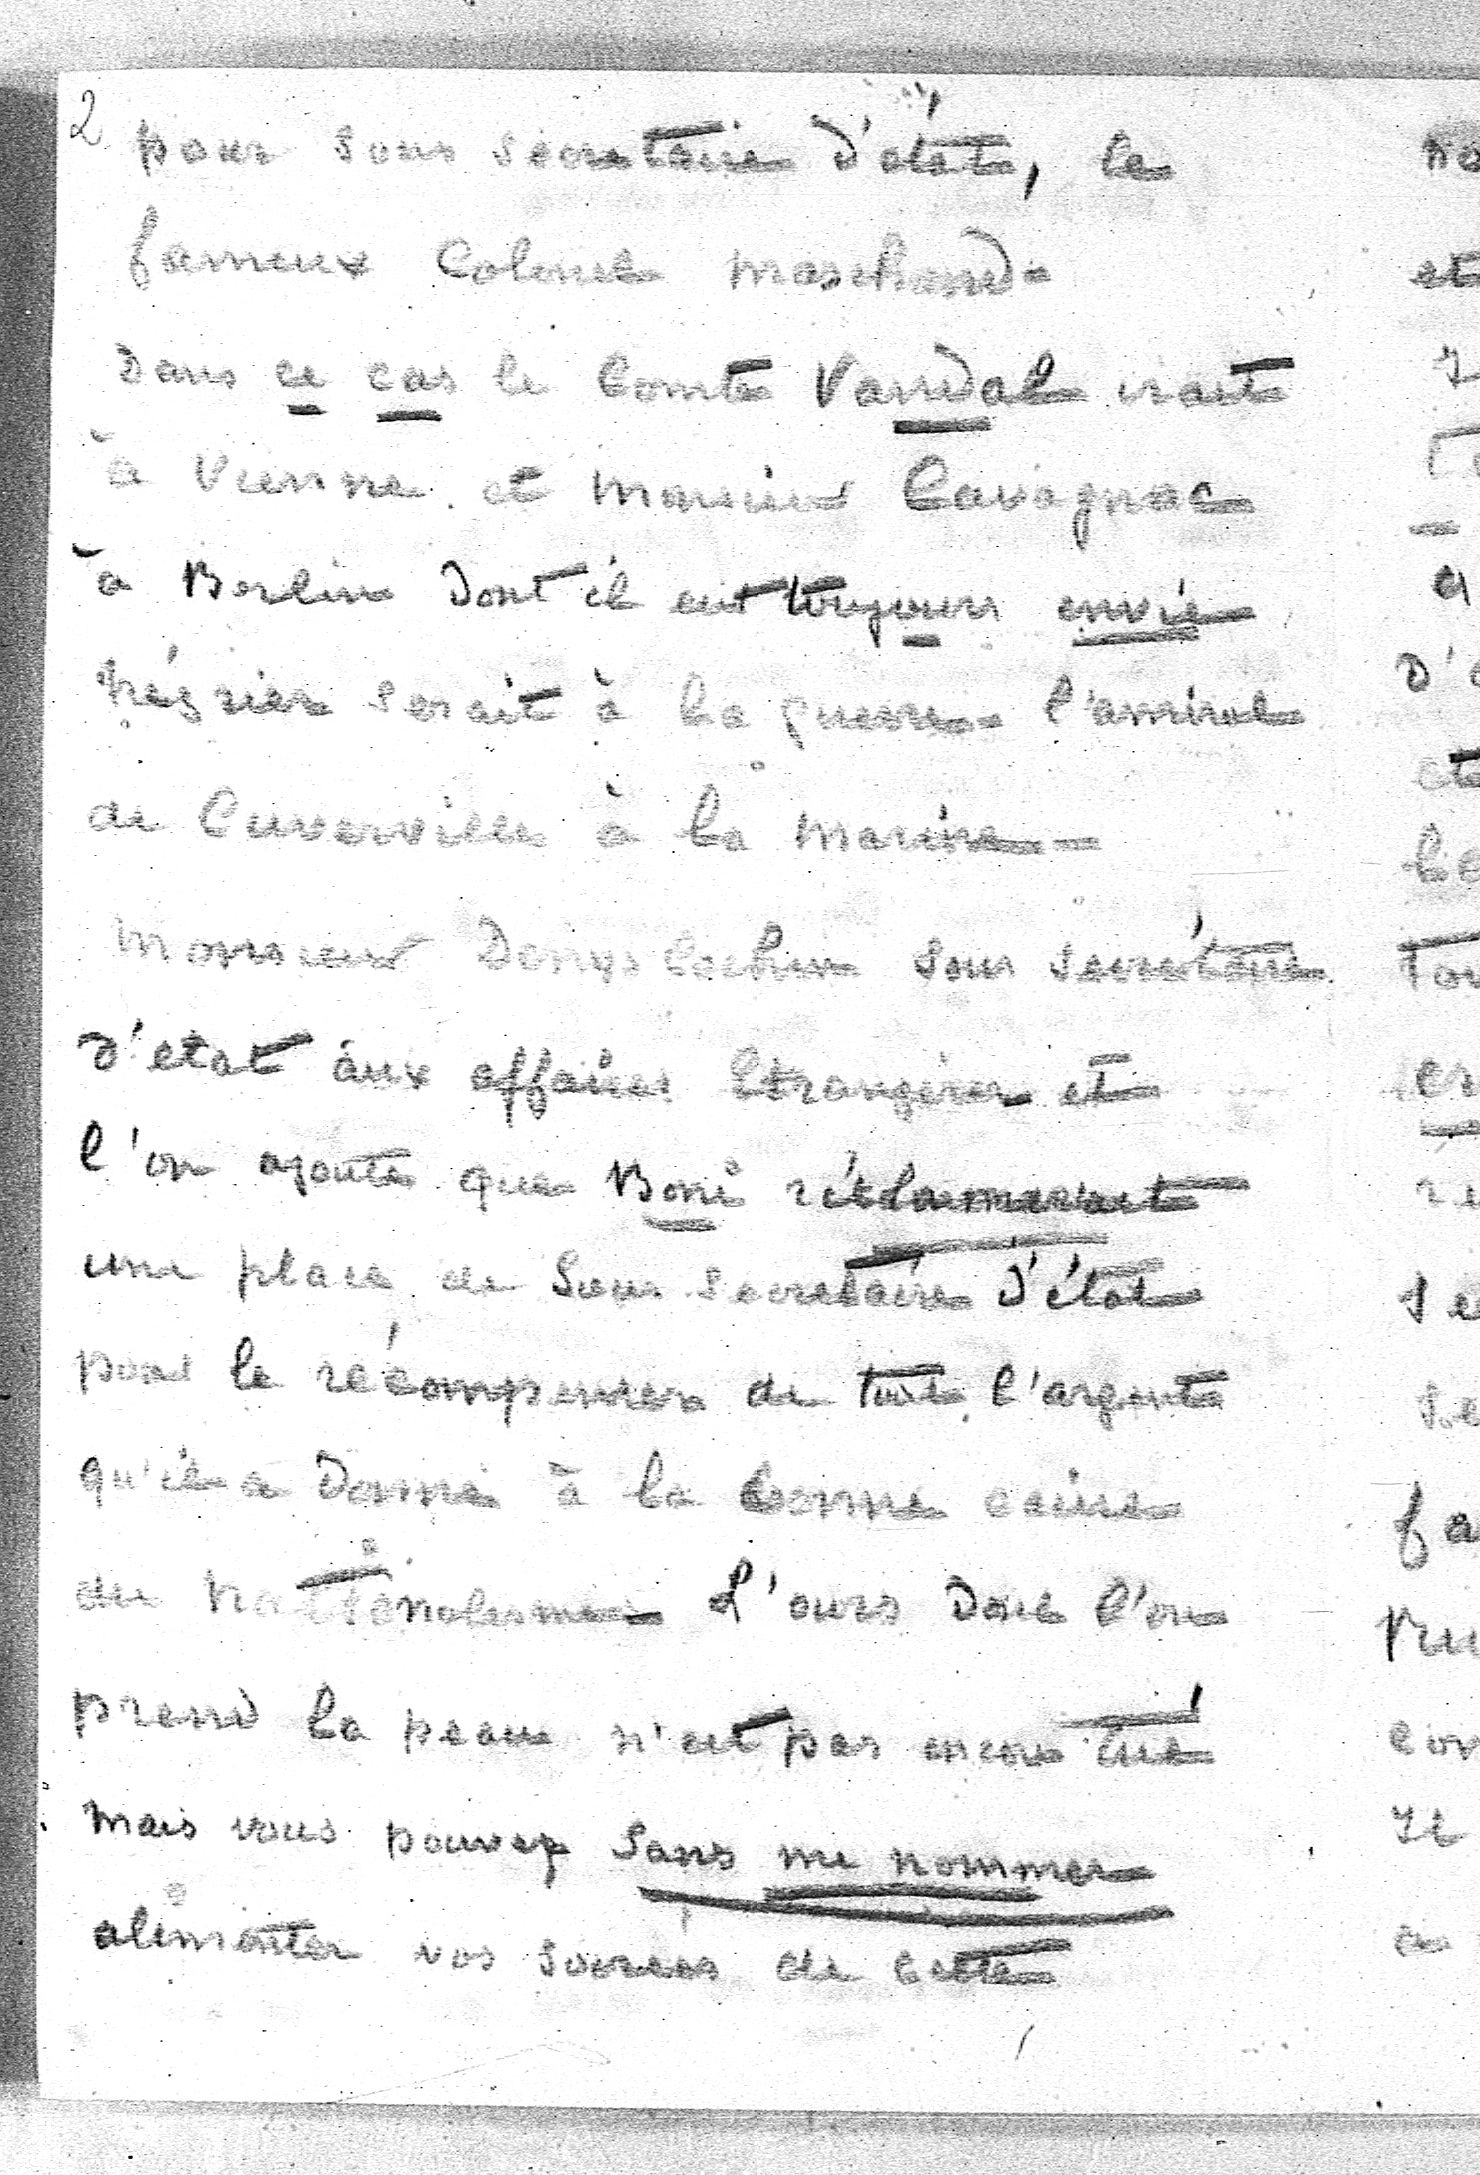 2
pour sous secretaire d'état, le
fameux Colonel Marchand -
Dans ce cas le Comte Vandal irait
à Vienne et Monsieur Cavagnac
à Berlin dont il eut toujours envie
Négrier serait à la guerre - l'amiral
de Cuverville à la marine -
Monsieur Denys Cochin sous secrétaire
d'etat aux affaires Etrangères et
l'on ajoute que Boni réclamerait
une place de Sous secretaire d'état
pour le récompenser de tout l'argent
qu'il a donné à la bonne cause
du nationalisme - L'ours dont l'on
prend la peau n'est pas encore tué
mais vous pouvez sans me nommer
alimenter vos soirées de cette